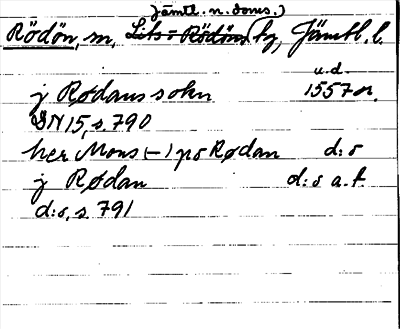 Jämtl. n. doms.)
Rödön, sn, Lits = Rödöns tg, Jämtl. l.
u.d.
j Rødans sokn 1557 or.
DN 15, s. 790
her Mons (–) po Rødan d:o
j Rødan d:o a.f.
d:o, s. 791